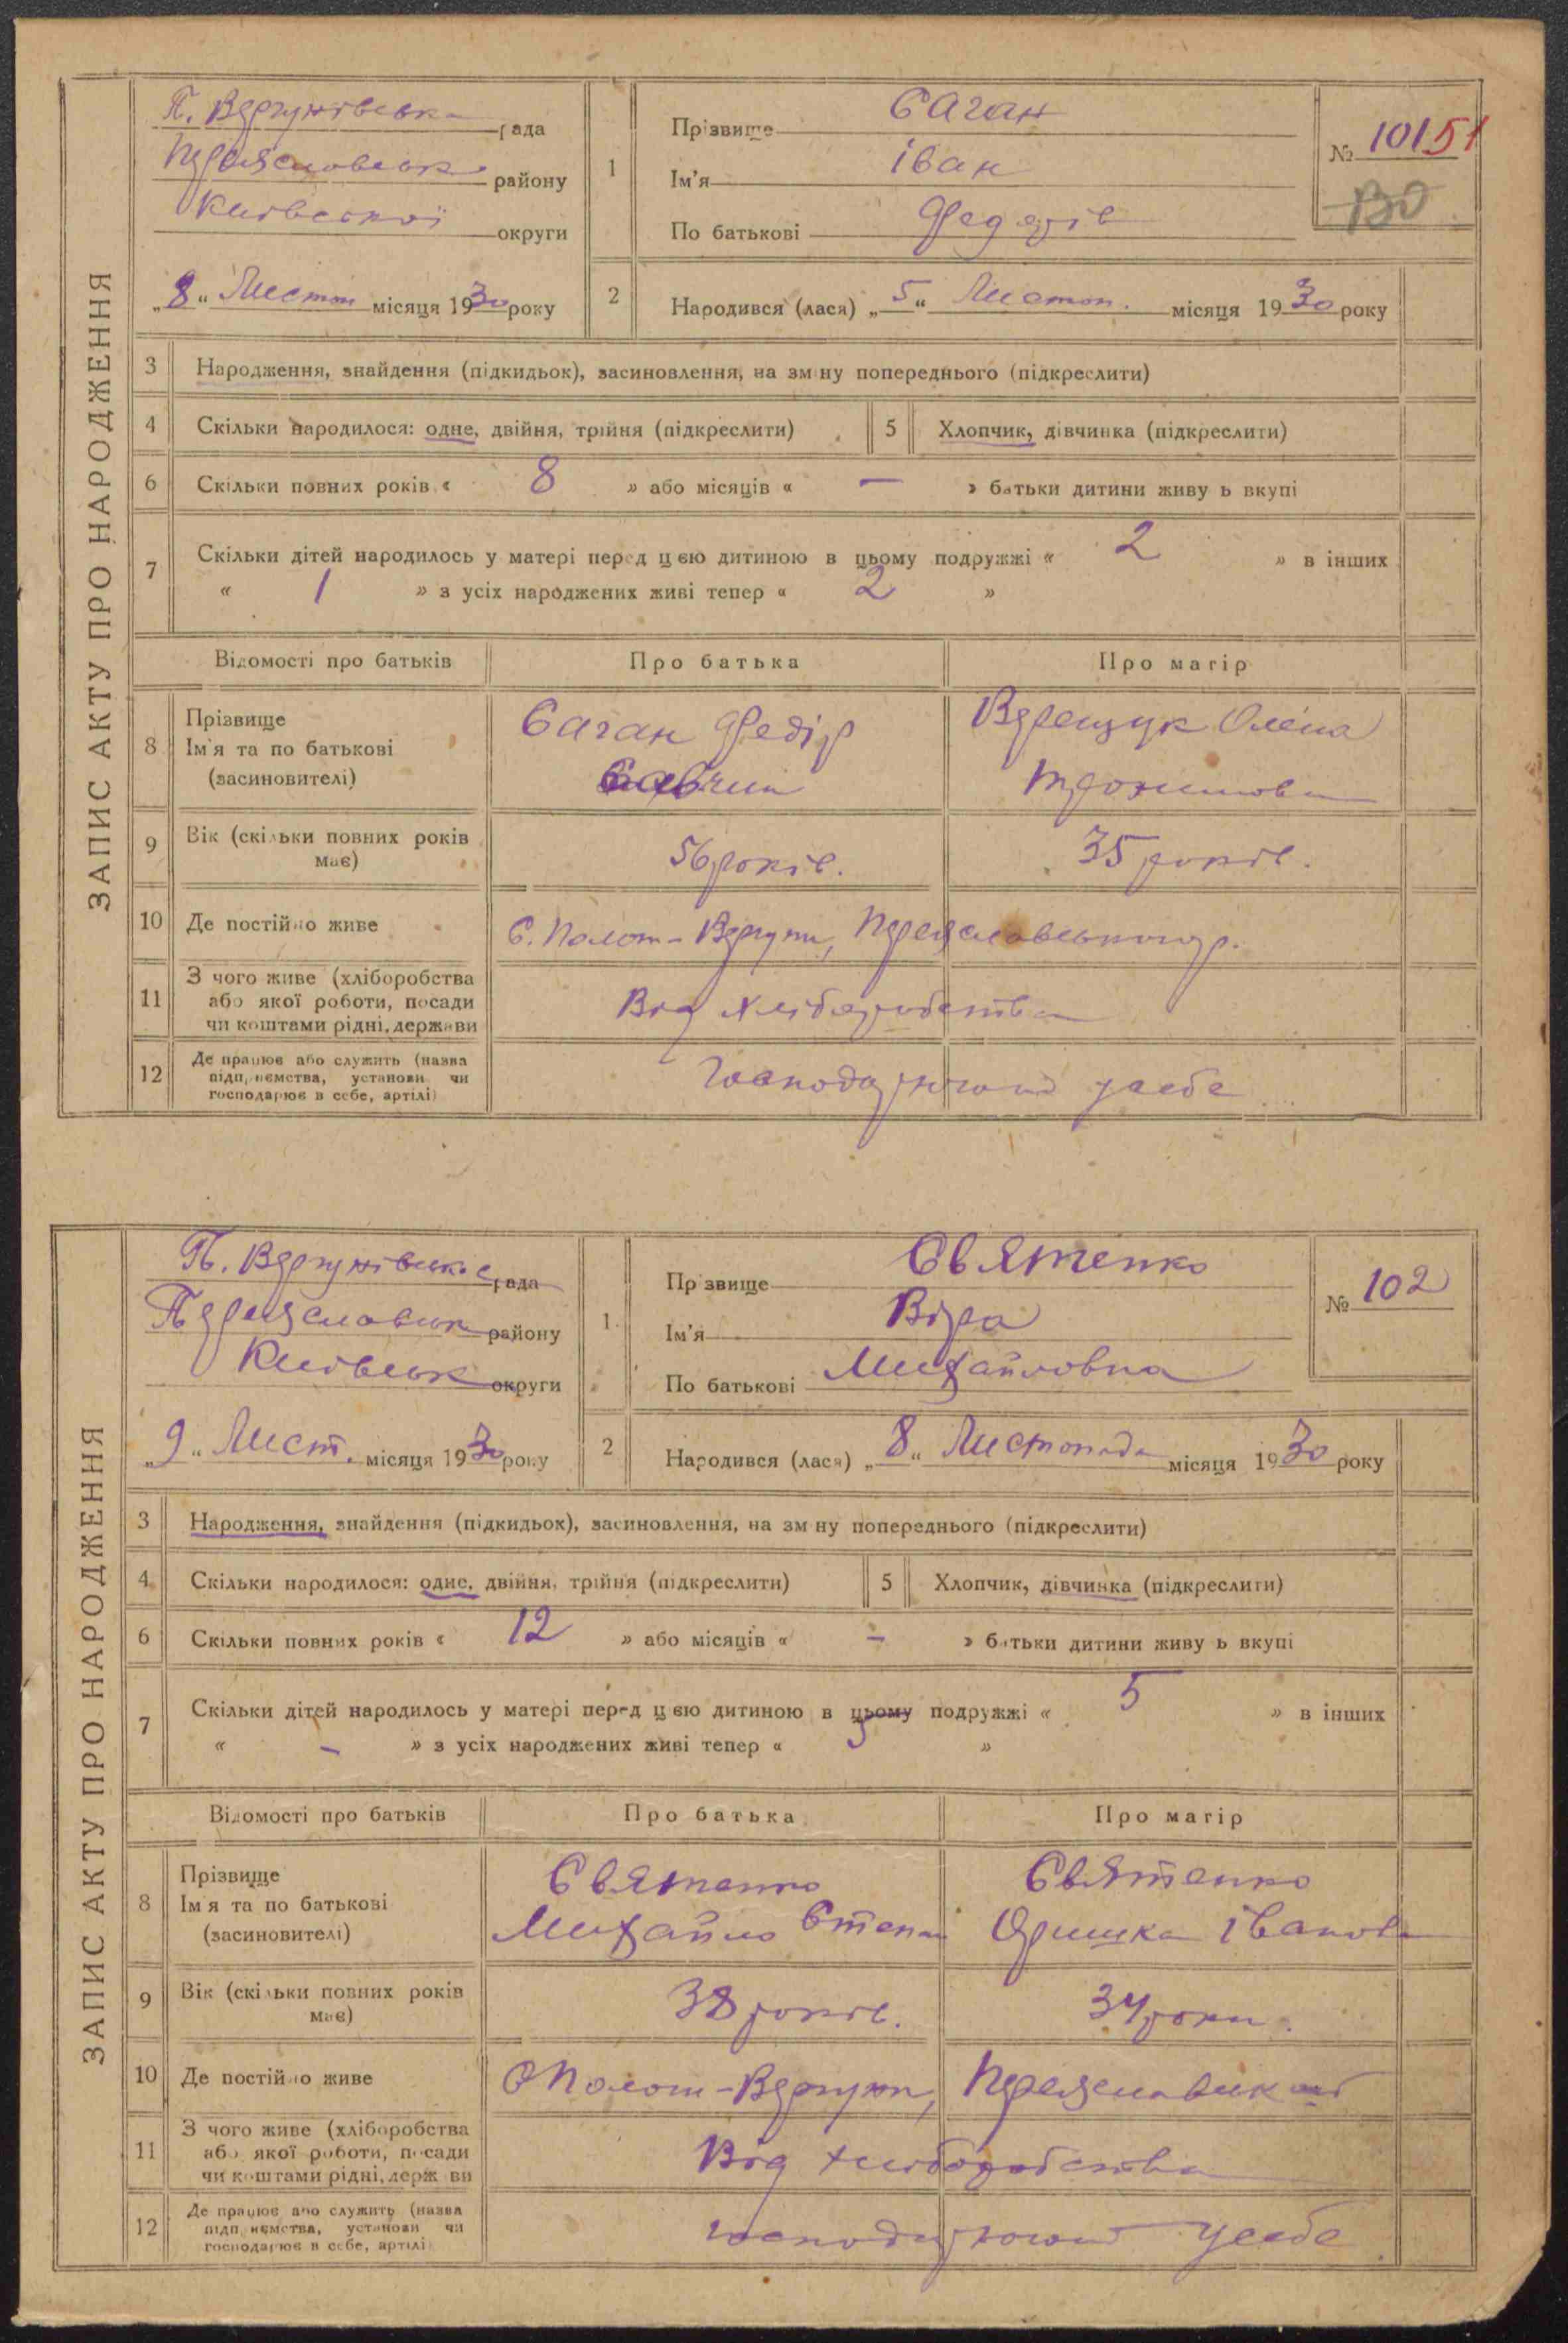 ЗАПИС АКТУ ПРО НАРОДЖЕННЯ
П. Вергунівська рада
Переяславськ району
Київської округи
„8“ Листоп місяця 1930 року
1
Прізвище Саган
Ім'я Іван
По батькові Федорів
№ 101 51
130
2 Народився (лася) „5“ Листоп. місяця 1930 року
3 Народження, знайдення (підкидьок), засиновлення, на зміну попереднього (підкреслити)
4 Скільки народилося: одне, двійня, трійня (підкреслити)
5 Хлопчик, дівчинка (підкреслити)
6 Скільки повних років « 8 » або місяців « — » батьки дитини живуть вкупі
7 Скільки дітей народилось у матері перед цією дитиною в цьому подружжі « 2 » в інших
« 1 » з усіх народжених живі тепер « 2 »
Відомості про батьків Про батька Про матір
8 Прізвище
Ім'я та по батькові
(засиновителі)
Саган Федір
Савчин
Верещук Олена
Трохимова
9 Вік (скільки повних років має)
56 років. 35 років.
10 Де постійно живе
С. Полот-Вергуни, Переяславського р.
11 З чого живе (хліборобства
або якої роботи, посади
чи коштами рідні, держави
Від хліборобства
12 Де працює або служить (назва
підприємства, установи чи
господарює в себе, артілі)
Господарюють у себе
ЗАПИС АКТУ ПРО НАРОДЖЕННЯ
П. Вергунівськ рада
Переяславськ району
Київськ округи
„9“ Лист. місяця 1930 року
1.
Прізвище Святенко
Ім'я Віра
По батькові Михайловна
№ 102
2 Народився (лася) „8“ Листопада місяця 1930 року
3 Народження, знайдення (підкидьок), засиновлення, на зміну попереднього (підкреслити)
4 Скільки народилося: одне, двійня, трійня (підкреслити)
5 Хлопчик, дівчинка (підкреслити)
6 Скільки повних років « 12 » або місяців « - » батьки дитини живуть вкупі
7 Скільки дітей народилось у матері перед цією дитиною в цьому подружжі « 5 » в інших
« - » з усіх народжених живі тепер « 5 »
Відомості про батьків Про батька Про матір
8 Прізвище
Ім'я та по батькові
(засиновителі)
Святенко
Михайло Степан
Святенко
Оришка Іванова
9 Вік (скільки повних років має)
38 років. 34 роки.
10 Де постійно живе
С Полот-Вергуни,
11 З чого живе (хліборобства
або якої роботи, посади
чи коштами рідні, держави
Від хліборобства
12 Де працює або служить (назва
підприємства, установи чи
господарює в себе, артілі)
господарюють у себе